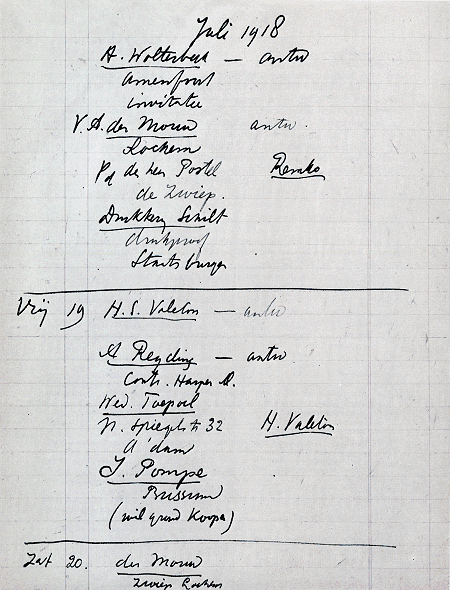 Juli 1918
A. Wolterbeek — antw
Amersfoort
invitatie
V. A. der Mouw antw.
Lochem
p/a de heer Postel Remko
de Zwiep.
Drukkerij Schilt
drukproef
Staatsburger
Vrij 19 H. S. Valeton — antw
A Reyding — antw
Wed. Toepoel
N. Spiegelstr 32 H. Valeton
A'dam
J. Pompe
Bussum
(wil grond Koopen)
Zat 20. der Mouw
Zwiep Lochem